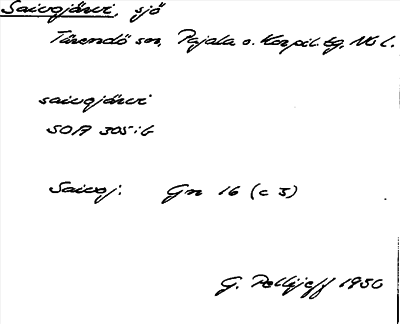 Saivojärvi, sjö
Tärendö sn, Pajala o. Korpil. tg. Nb l.
saivojärvi
SOA 305:6
Saivoj: Gn 16 (c 3)
G. Pellijeff 1950